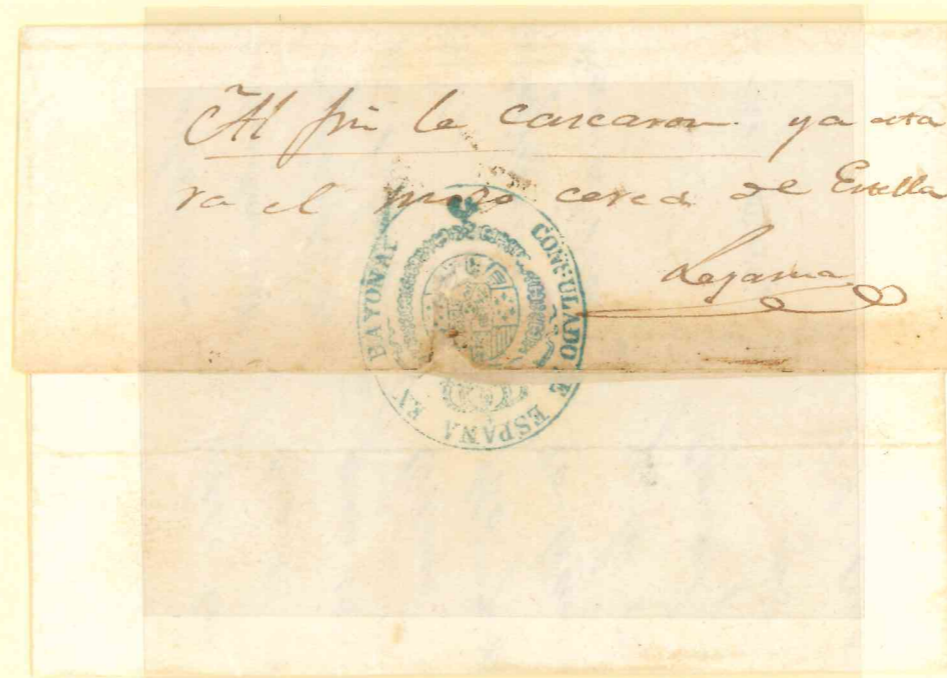 Al fin le cascaron ya esta
ra el mozo cerca de Estella
CONSULADO DE ESPAÑA EN BAYONA